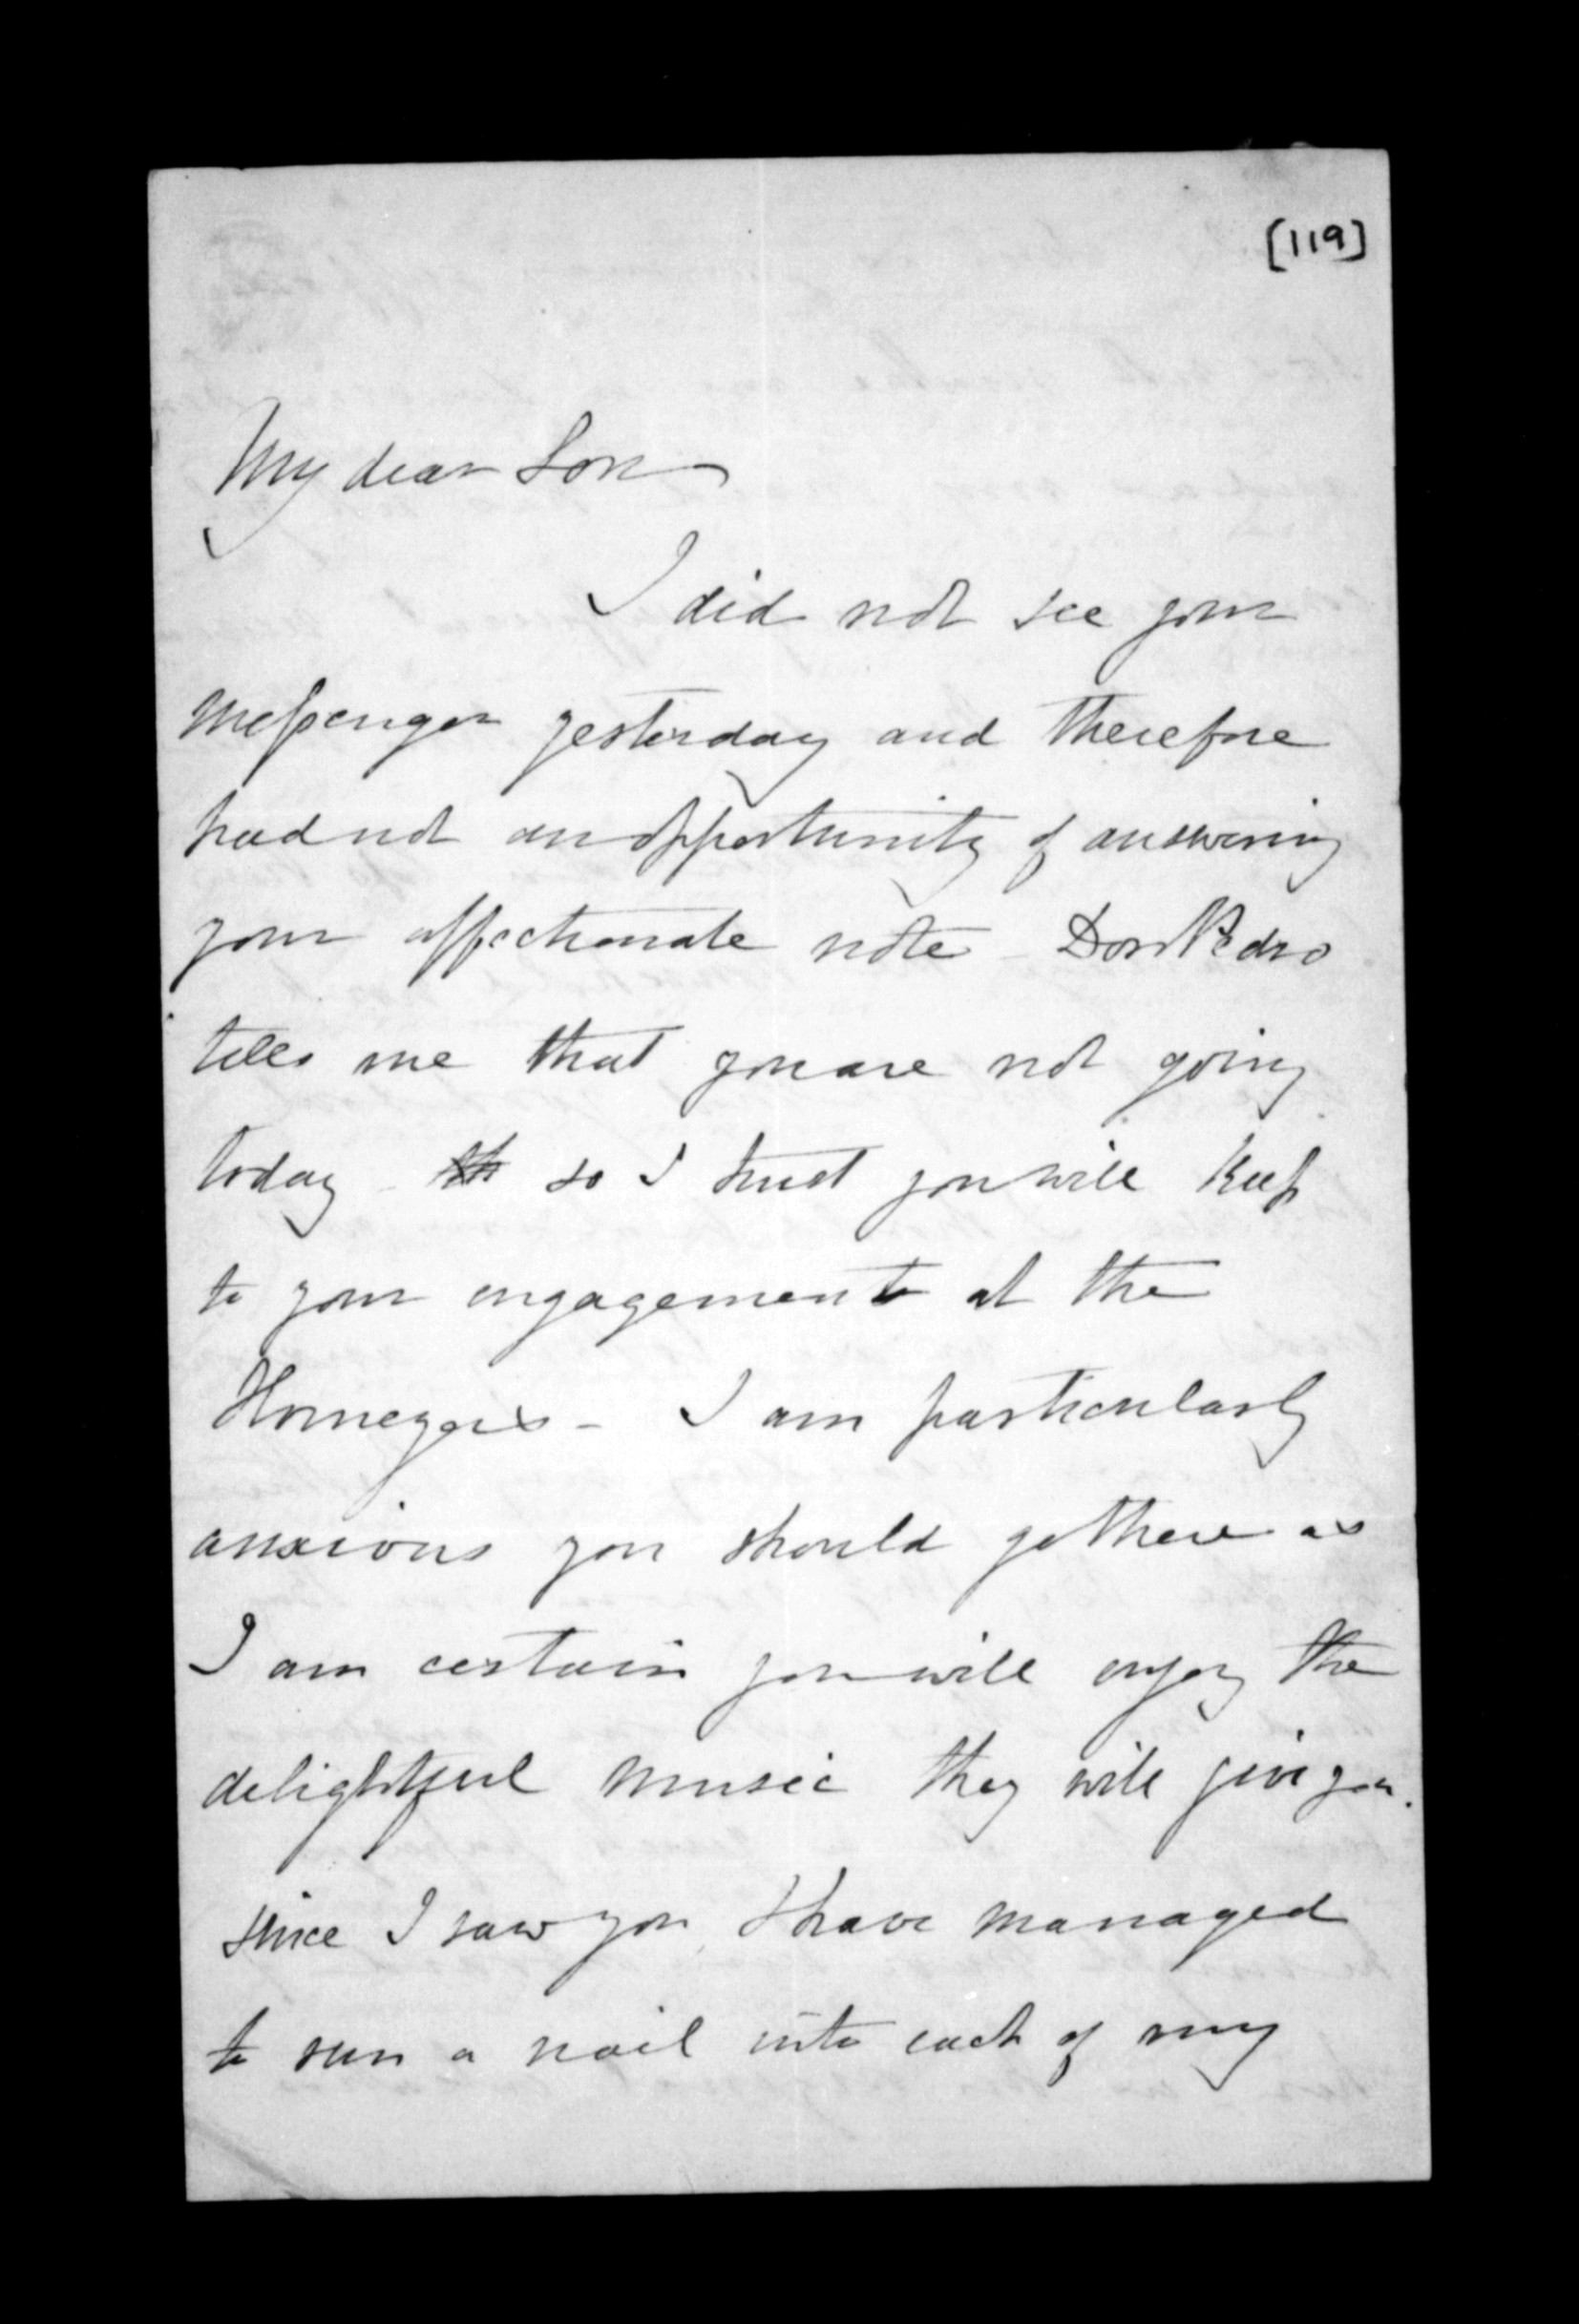 [119]
My dear Son
I did not see your
messenger yesterday and therefore
had not an opportunity of answering
your affectionate note - Don Pedro
tells me that you are not going
today so I trust you will keep
to your engagement at the
I am particularly
anxious you should go there as
I am certain you will enjoy the
delightful music they will give you.
since I saw you I have managed
to run a nail into each of my